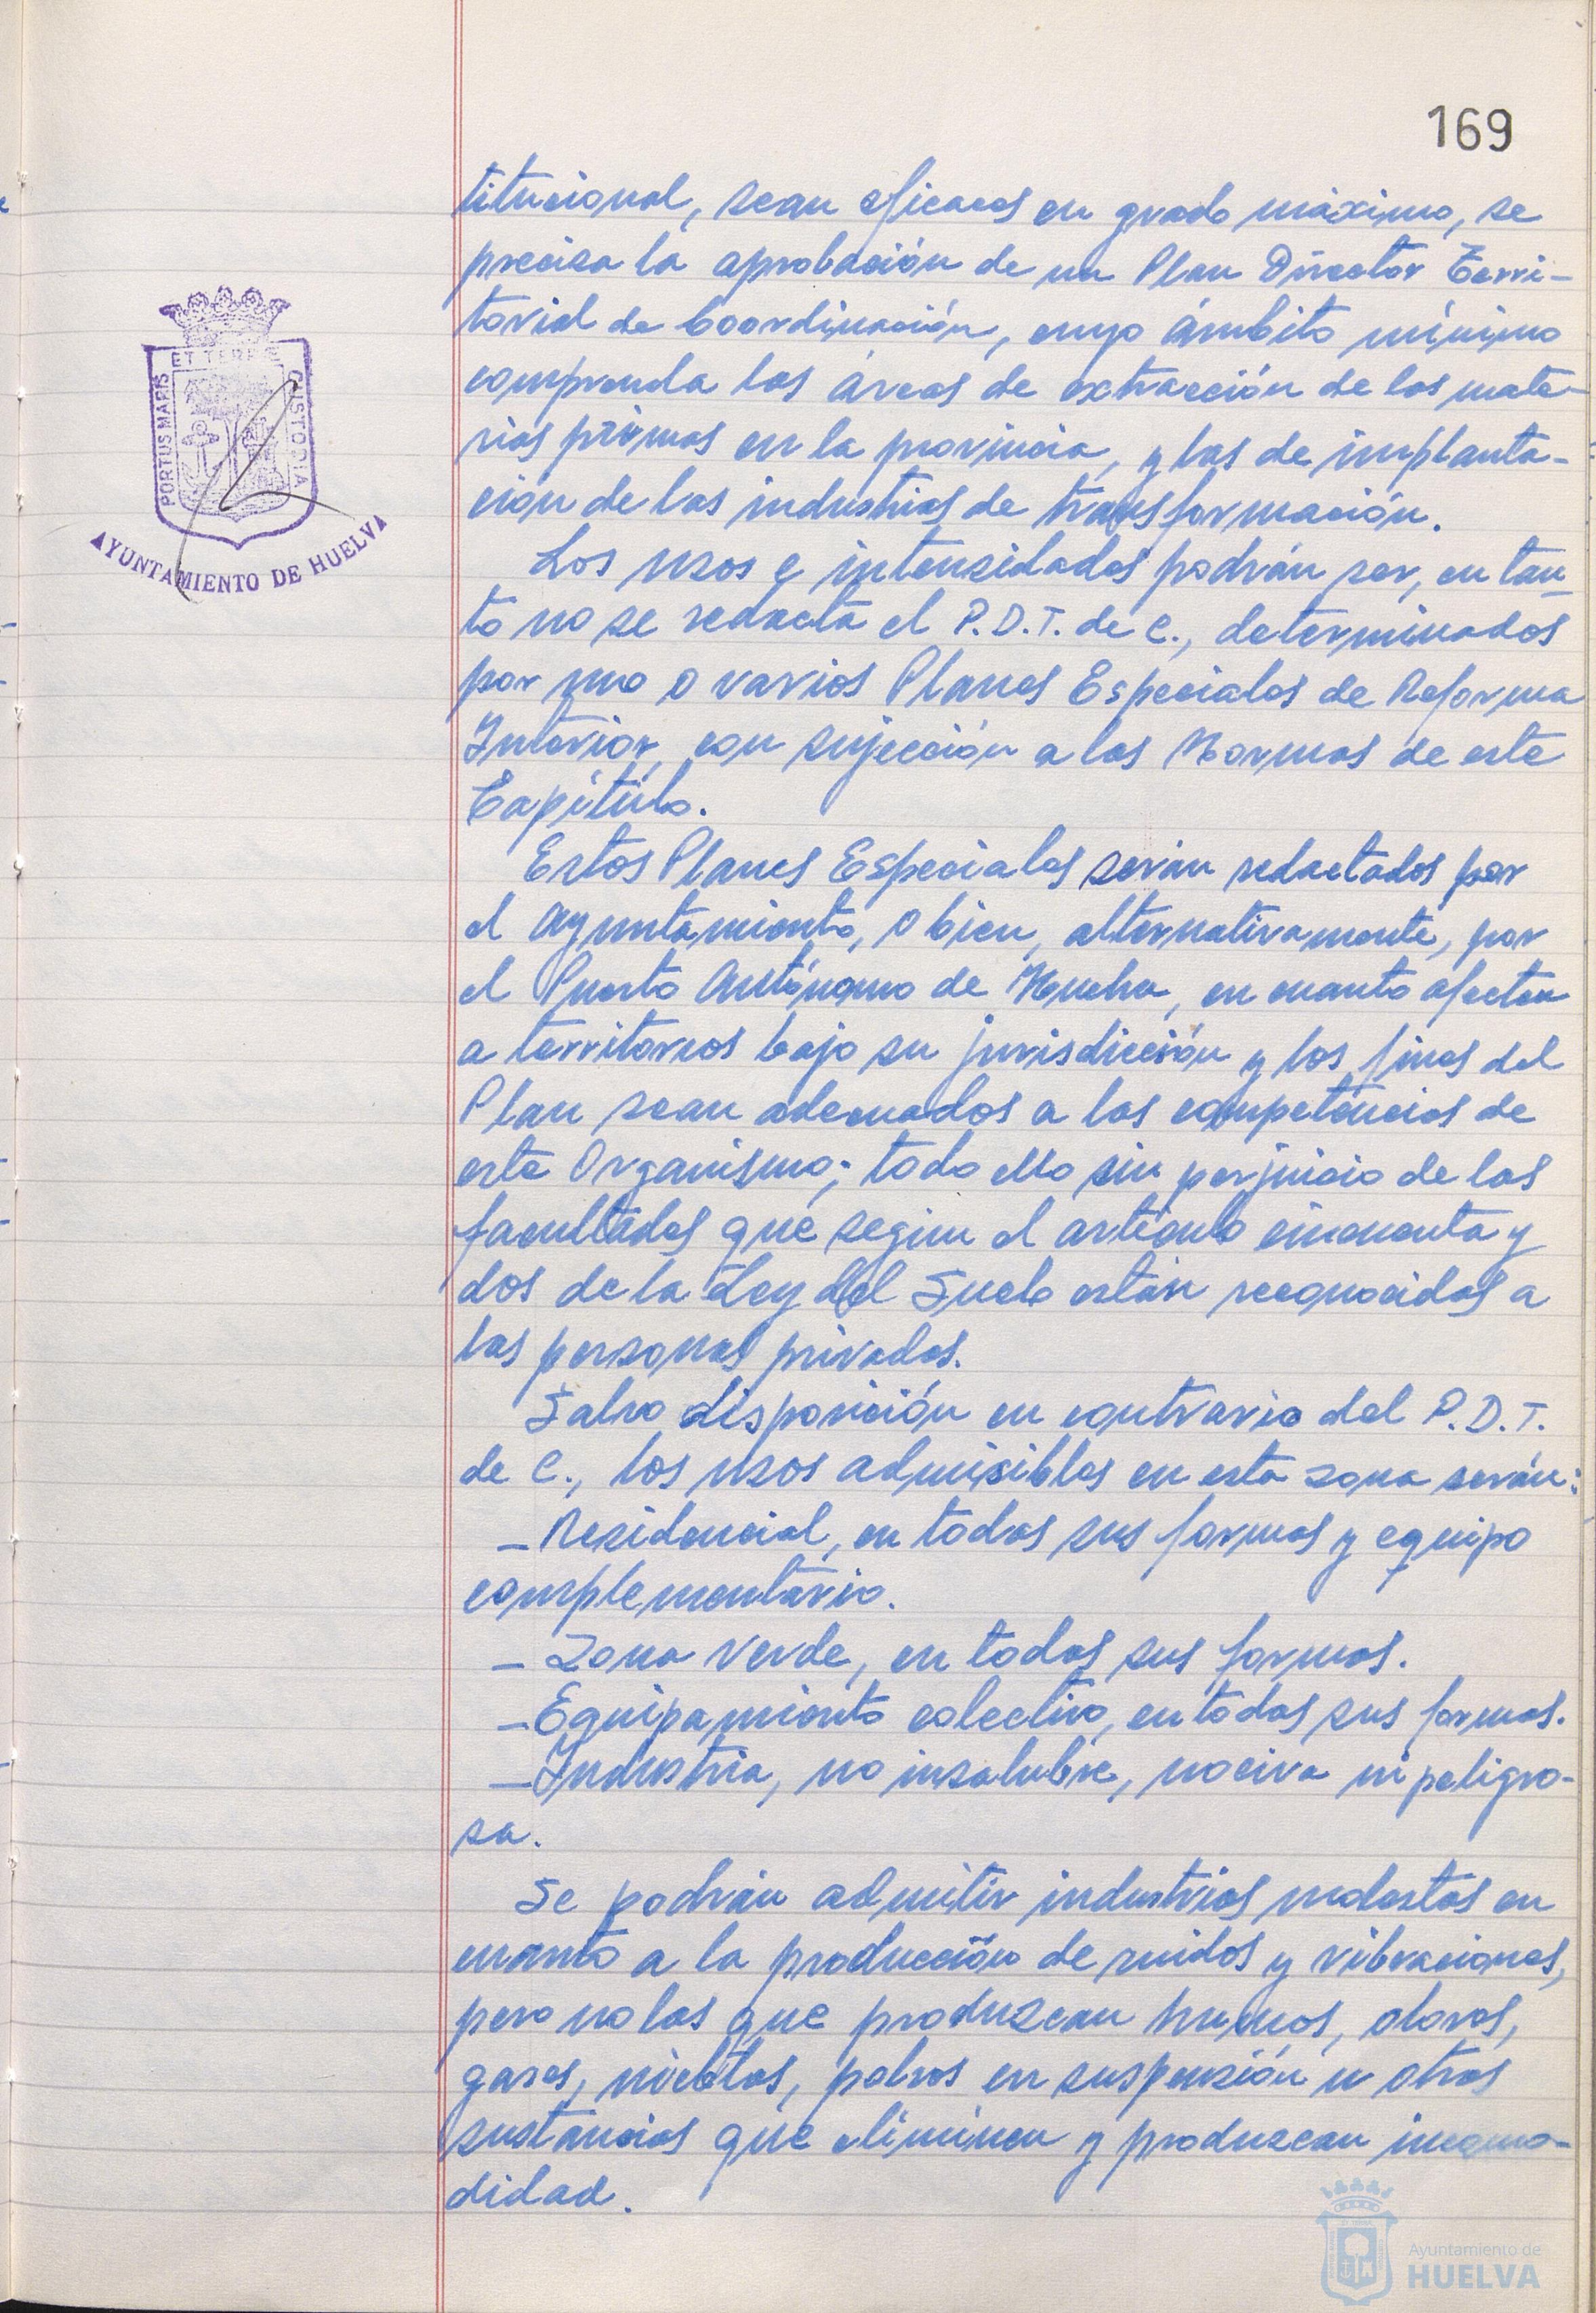 169
titucional, sean eficaces en grado máximo, se
precisa la aprobación de un Plan Director Terri-
torial de Coordinación, cuyo ámbito mínimo
comprenda las áreas de extracción de las mate-
rias primas en la provincia, y las de implanta-
ción de las industrias de transformación.
Los usos e intensidades podrán ser, en tan-
to no se redacta el P.D.T. de C., determinados
por uno o varios Planes Especiales de Reforma
Interior, con sujección a las Normas de este
Capítulo.
Estos Planes Especiales serán redactados por
el Ayuntamiento, o bien, alternativamente, por
el Puerto Autónomo de Huelva, en cuanto afecten
a territorios bajo su jurisdicción y los fines del
Plan sean adecuados a las competencias de
este Organismo; todo ello sin perjuicio de las
facultades que según el artículo cincuenta y
dos de la Ley del Suelo están reconocidas a
las personas privadas.
Salvo disposición en contrario del P.D.T.
de C., los usos admisibles en esta zona serán:
- Residencial, en todas sus formas y equipo
complementario.
- Zona Verde, en todas sus formas.
- Equipamiento colectivo, en todas sus formas.
- Industria, no insalubre, nociva ni peligro-
sa.
Se podrán admitir industrias molestas en
cuanto a la producción de ruidos y vibraciones,
pero no las que produzcan humos, olores,
gases, nieblas, polvos en suspensión u otras
sustancias que eliminen y produzcan incomo-
didad.
PORTUS MARIS ET TERRE CUSTODIA
AYUNTAMIENTO DE HUELVA
Ayuntamiento de
HUELVA